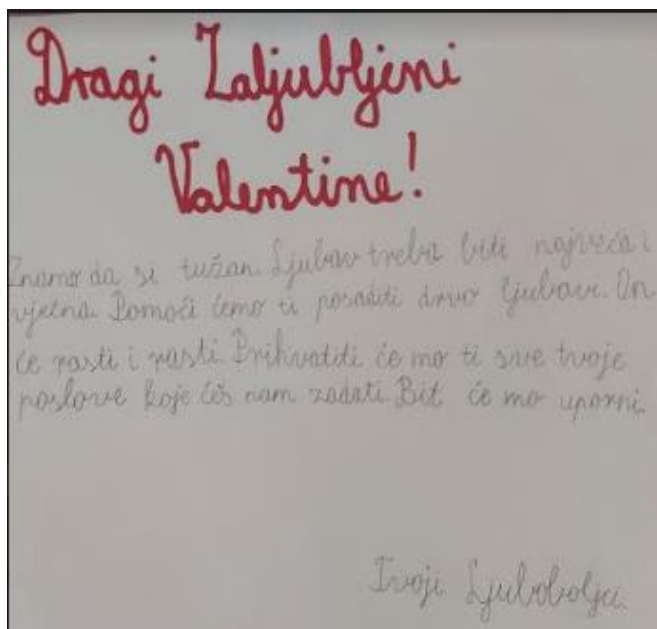 Dragi Zaljubljeni
Valentine!
Znamo da si tužan. Ljubav treba biti najveća i
vječna. Pomoći ćemo ti posaditi drvo ljubavi. On
će rasti i rasti. Prihvatiti će mo ti sve tvoje
poslove koje ćeš nam zadati. Bit će mo uporni.
Tvoji